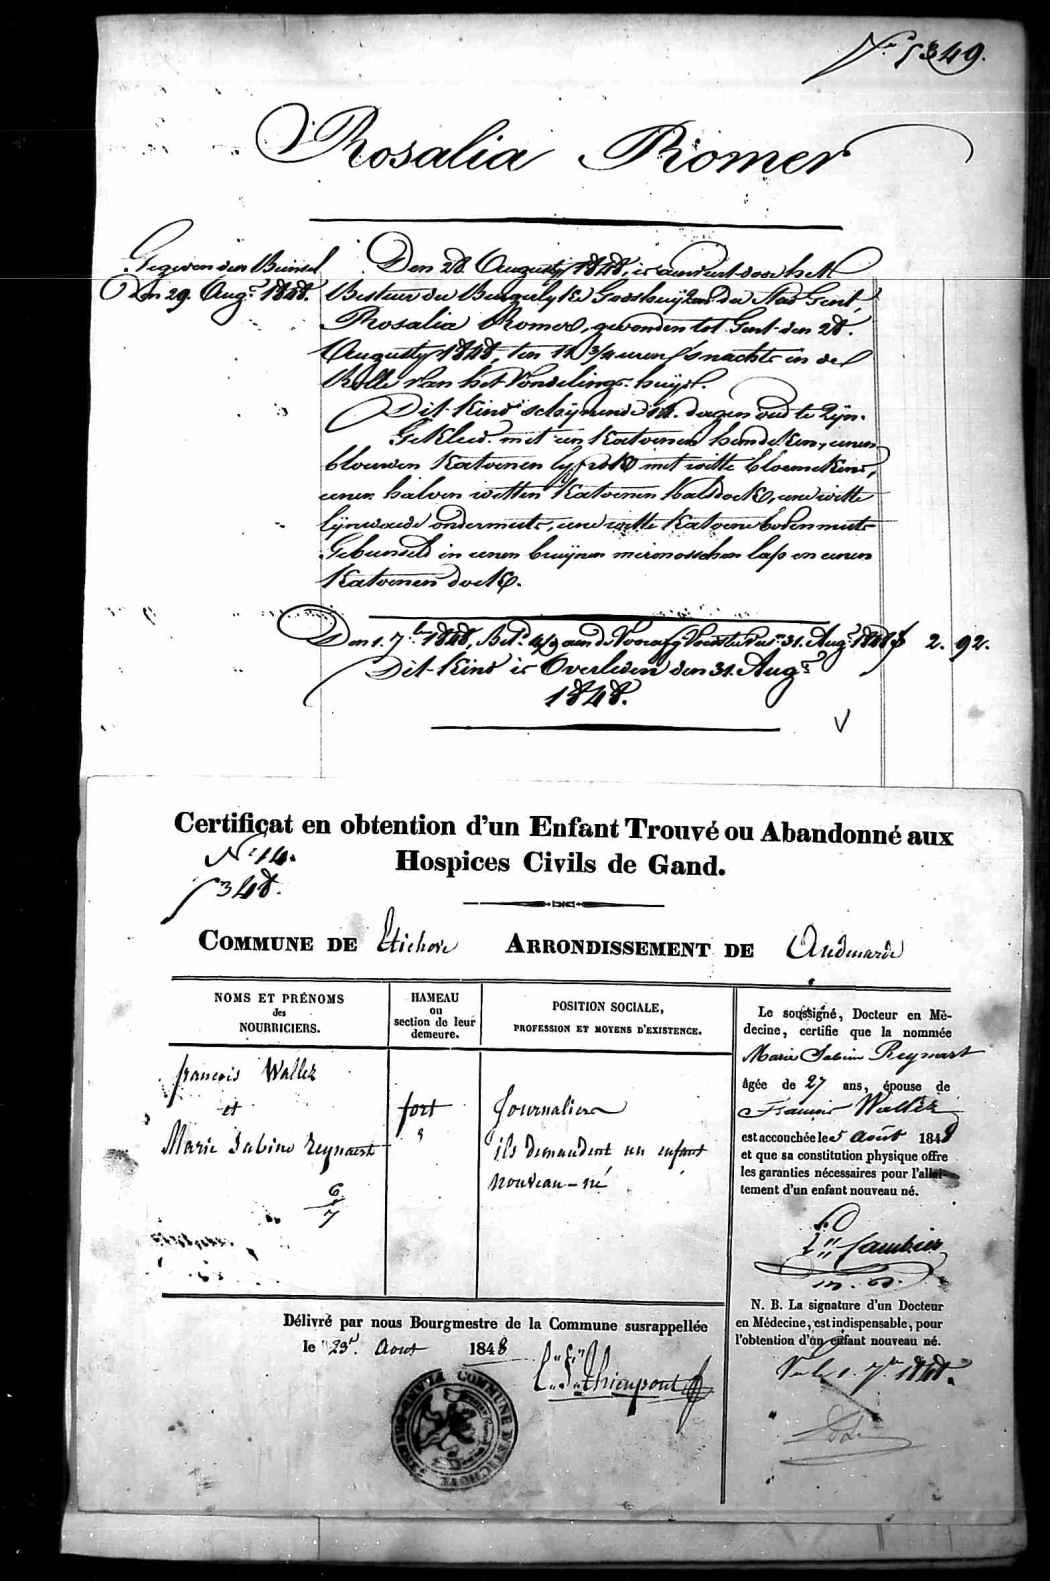 N.º 5349.
Rosalia Romer
Gegeven den Buinsel
Den 29. Aug.s 1848.
Den 28. Augusty 1848, is aenveirt door het
Bestuer der Burgerlyke Godshuyzen der Stad Gent,
Rosalia Romer, gevonden tot Gent den 28.
Augusty 1848, ten 11 3/4 uren 's nachts in de
Rolle van het Vondelings-huys.
Dit Kind schynende 14. dagen oud te zyn.
Gekleed met een Katoenen hemdeken, eenen
blouwen Katoenen lyfrok met witte bloemekens,
eenen halven witten Katoenen halsdoek, eene witte
lynwaede ondermuts, eene witte Katoene bovenmuts
Gebunseld in eenen bruynen merinosschen lap en eenen
Katoenen doek.
Den 1. 7.bre 1848, Bet.d aen de Voester 31. Aug.s 1848 f 2. 92.
Dit Kind is Overleden den 31. Aug.s
1848.
Certificat en obtention d'un Enfant Trouvé ou Abandonné aux
Hospices Civils de Gand.
N.º 14.
5348.
COMMUNE DE Etichove ARRONDISSEMENT DE Audenarde
NOMS ET PRÉNOMS
des
NOURRICIERS.
HAMEAU
ou
section de leur
demeure.
POSITION SOCIALE,
PROFESSION ET MOYENS D'EXISTENCE.
françois Wallez
et
Marie Sabine Reynaert
6
7
fort
Journalier
ils demandent un enfant
nouveau-né
Le soussigné, Docteur en Mé-
decine, certifie que la nommée
Marie Sabine Reynaert
âgée de 27 ans, épouse de
François Wallez
est accouchée le 5 août 1848
et que sa constitution physique offre
les garanties nécessaires pour l'allai-
tement d'un enfant nouveau né.
N. B. La signature d'un Docteur
en Médecine, est indispensable, pour
l'obtention d'un enfant nouveau né.
Délivré par nous Bourgmestre de la Commune susrappellée
le 23 Aout 1848
L. Thienpont
Vu le 1. 7.bre 1848.
COMMUNE D'ETICHOVE